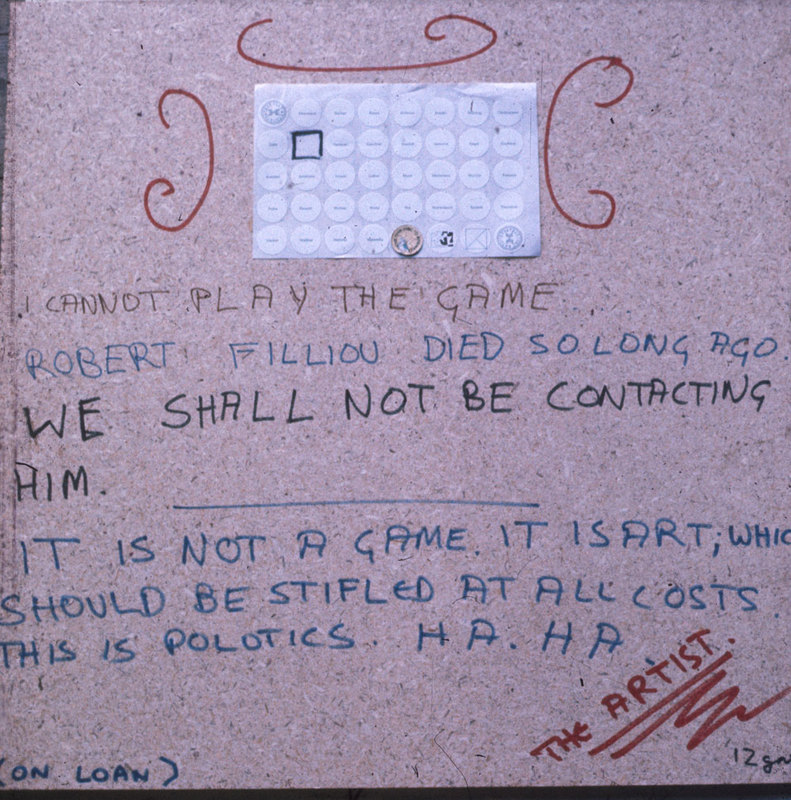 I CANNOT PLAY THE GAME
ROBERT FILLIOU DIED SO LONG AGO.
WE SHALL NOT BE CONTACTING
HIM.
IT IS NOT A GAME. IT IS ART; WHIC
SHOULD BE STIFLED AT ALL COSTS.
THIS IS POLOTICS. HA. HA
THE ARTIST.
(ON LOAN)